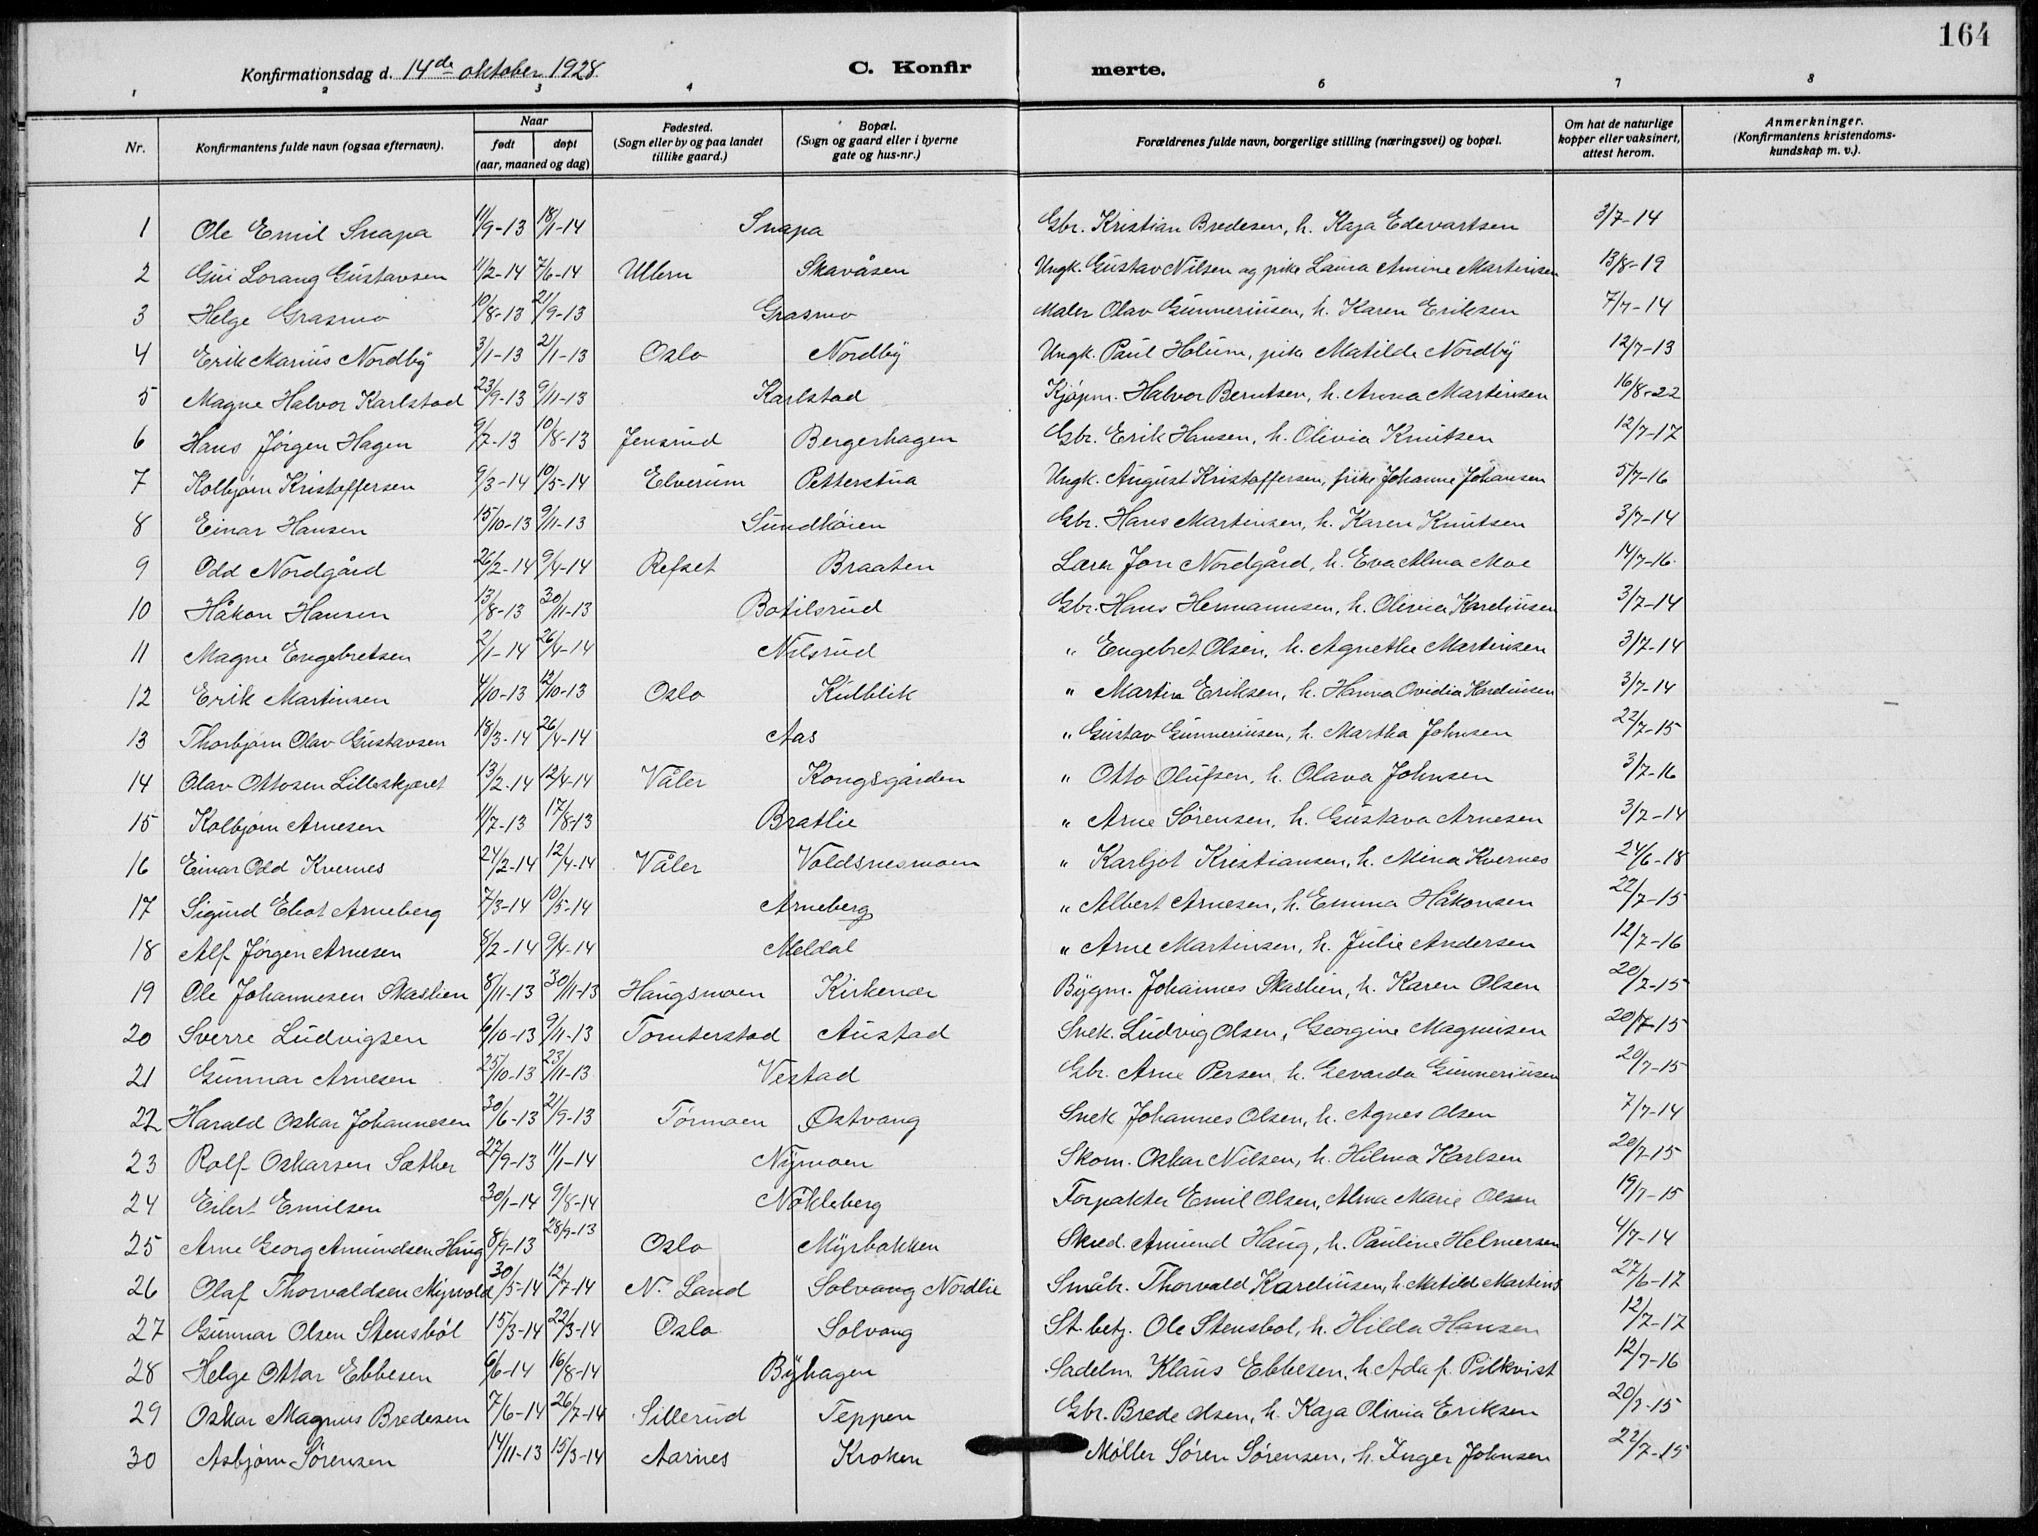 164
Konfirmationsdag d. 14de oktober 1928.
C. Konfirmerte.
1 2 3 4 6 7 8
Nr.
Konfirmantens fulde navn (ogsaa efternavn).
Naar
født døpt
(aar, maaned og dag)
Fødested.
(Sogn eller by og paa landet
tillike gaard.)
Bopæl.
(Sogn og gaard eller i byerne
gate og hus-nr.)
Forældrenes fulde navn, borgerlige stilling (næringsvei) og bopæl.
Om hat de naturlige
kopper eller vaksinert,
attest herom.
Anmerkninger.
(Konfirmantens kristendoms-
kundskap m. v.).
1 Ole Emil Snapa 11/9-13 18/1-14 Snapa Gbr. Kristian Bredesen, h. Kaja Edevartsen 3/7-14
2 Lorang Gustavsen 11/2-14 7/6-14 Ullern Skavåsen Ungk. Gustav Nilsen og pike Laura Amine Martinsen 13/8-19
3 Helge Grasmo 10/8-13 21/9-13 Grasmo Maler Olav Gunneriusen, h. Karen Eriksen 7/7-14
4 Erik Marius Nordby 3/1-13 21/1-13 Oslo Nordby Ungk. Paul Holum, pike Matilde Nordby 12/7-13
5 Magne Halvor Karlstad 23/9-13 9/11-13 Karlstad Kjøpm. Halvor Berntsen, h. Anna Martinsen 16/8-22
6 Hans Jørgen Hagen 9/7-13 10/8-13 Jensrud Bergerhagen Gbr. Erik Hansen, h. Olivia Knutsen 12/7-17
7 Kolbjørn Kristoffersen 9/3-14 10/5-14 Elverum Petterstua Ungk. August Kristoffersen, pike Johanne Johansen 5/7-16
8 Einar Hansen 15/10-13 9/11-13 Sundkøien Gbr. Hans Martinsen, h. Karen Knutsen 3/7-14
9 Odd Nordgård 26/2-14 9/4-14 Refset Braaten Lærer Jon Nordgård, h. Eva Alma Moe 14/7-16.
10 Håkon Hansen 13/8-13 30/11-13 Botilsrud Gbr. Hans Hermannsen, h. Olivia Kareliusen 3/7-14
11 Magne Engebretsen 2/1-14 26/4-14 Nilsrud " Engebret Olsen, h. Agnethe Martinsen 3/7-14
12 Erik Martinsen 4/10-13 12/10-13 Oslo Kulblik " Martin Eriksen, h. Hanna Ovidia Kareliusen 3/7-14
13 Thorbjørn Olav Gustavsen 18/3-14 26/4-14 Aas " Gustav Gunneriusen, h. Martha Johnsen 22/7-15
14 Olav Ottosen Lilleskjæret 13/2-14 12/4-14 Våler Kongsgården " Otto Olufsen, h. Olava Johnsen 3/7-16
15 Kolbjørn Arnesen 11/7-13 17/8-13 Bratlie " Arne Sørensen, h. Gustava Arnesen 3/7-14
16 Einar Odd Kvernes 24/2-14 12/4-14 Våler Voldsnesmoen " Karljot Kristiansen, h. Mina Kvernes 24/6-18
17 Sigurd Eliot Arneberg 7/3-14 10/5-14 Arneberg " Albert Arnesen, h. Emma Håkonsen 22/7-15
18 Alf Jørgen Arnesen 8/2-14 9/4-14 Meldal " Arne Martinsen, h. Julie Andersen 12/7-16
19 Ole Johannesen Skaslien 8/11-13 30/11-13 Haugsmoen Kirkenær Bygm. Johannes Skaslien, h. Karen Olsen 20/7-15
20 Sverre Ludvigsen 6/10-13 9/11-13 Tomterstad Austad Snek. Ludvig Olsen, Georgine Magnusen 20/7-15
21 Gunnar Arnesen 25/10-13 23/11-13 Vestad Gbr. Arne Persen h. Gevarda Gunneriusen 20/7-15
22 Harald Oskar Johannesen 30/6-13 21/9-13 Tørmoen Østvang Snek Johannes Olsen, h. Agnes Olsen 7/7-14
23 Rolf Oskarsen Sæther 27/9-13 11/1-14 Nymoen Skom. Oskar Nilsen, h. Hilma Karlsen 20/7-15
24 Eilert Emilsen 30/1-14 9/8-14 Nøkleberg Forpakter Emil Olsen, Alma Marie Olsen 19/7-15
25 Arne Georg Amundsen Haug 8/9-13 28/9-13 Oslo Myrbakken Skred. Amund Haug, h. Pauline Helmersen 4/7-14
26 Olaf Thorvaldsen Myrvold 30/5-14 12/7-14 N. Land Solvang Nordlie Småbr. Thorvald Kareliusen, h. Matilde Martins 27/6-17
27 Gunnar Olsen Stensbøl 15/3-14 22/3-14 Oslo Solvang St. betj. Ole Stensbøl, h. Hilda Hansen 12/7-17
28 Helge Ottar Ebbesen 6/6-14 16/8-14 Byhagen Sadelm. Klaus Ebbesen, h Ada f. Pilkvist 12/7-16
29 Oskar Magnus Bredesen 7/6-14 26/7-14 Sillerud Teppen Gbr. Brede Olsen, h. Kaja Olivia Eriksen 20/7-15
30 Asbjørn Sørensen 14/11-13 15/3-14 Aarnes Kroken Møller Søren Sørensen, h. Inger Johnsen 22/7-15